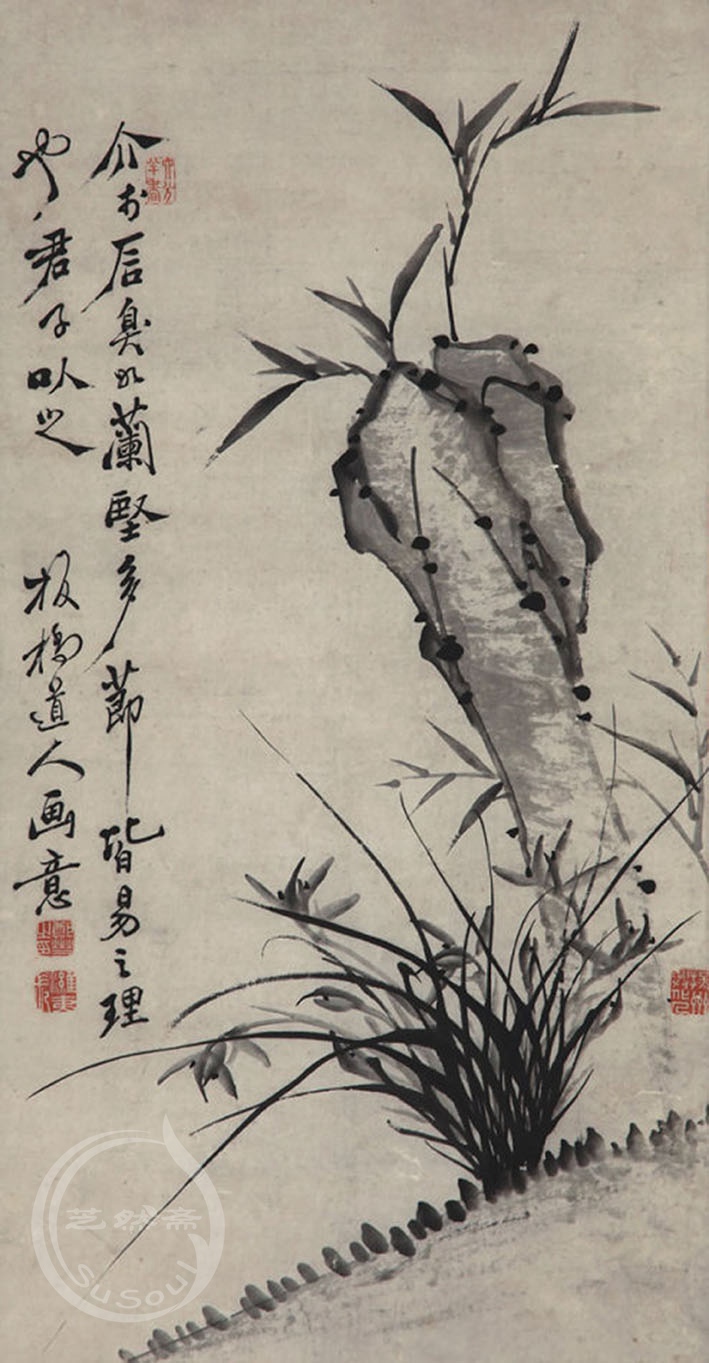 介于石臭如蘭堅多節皆易之理
也君子以之
板橋道人画意
芝然斋
SuSoul